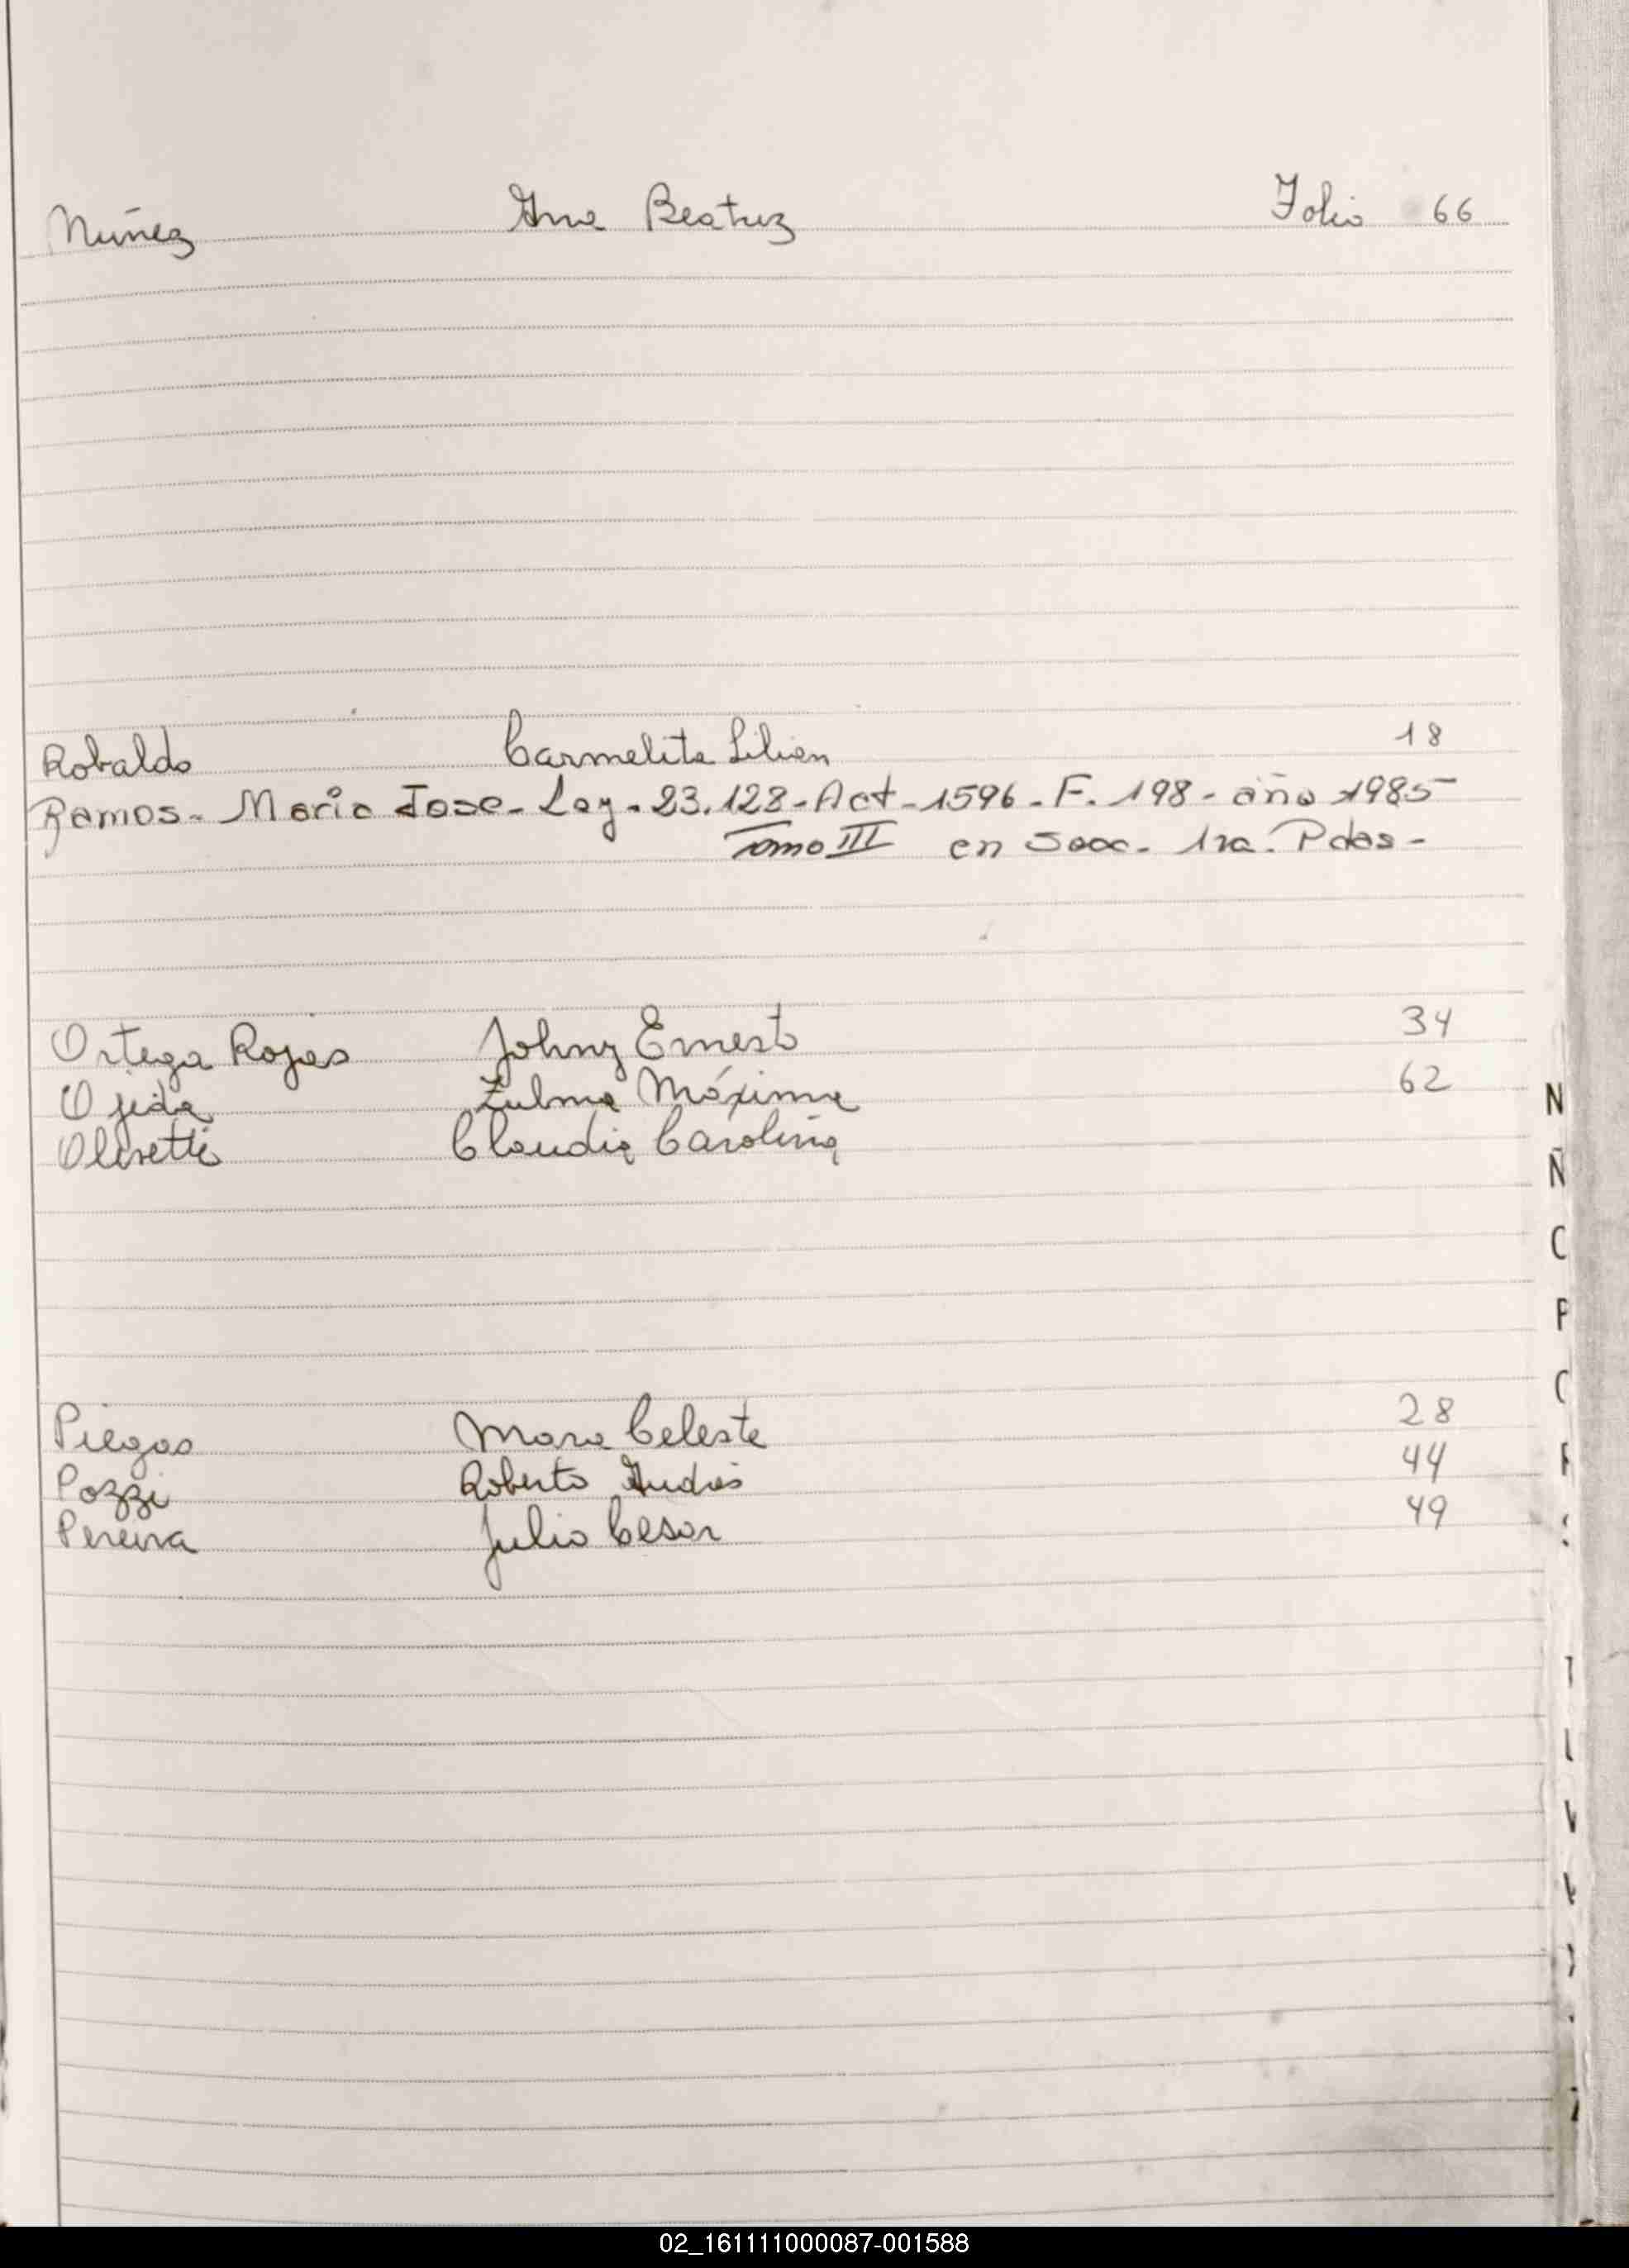 Nuñez Ana Beatriz Folio 66
Robaldo Carmelita Lilian 18
Ramos - Maria Jose - Ley - 23.128 - Act - 1596 - F. 198 - año 1985
Tomo III en Secc. 1ra. Pdas -
Ortega Rojas Johny Ernesto 34
Ojeda Zulma Máxima 62
Olivetti Claudia Carolina
Piegas Mara Celeste 28
Pozzi Roberto Andrés 44
Pereira Julio Cesar 49
N
Ñ
P
02_161111000087-001588